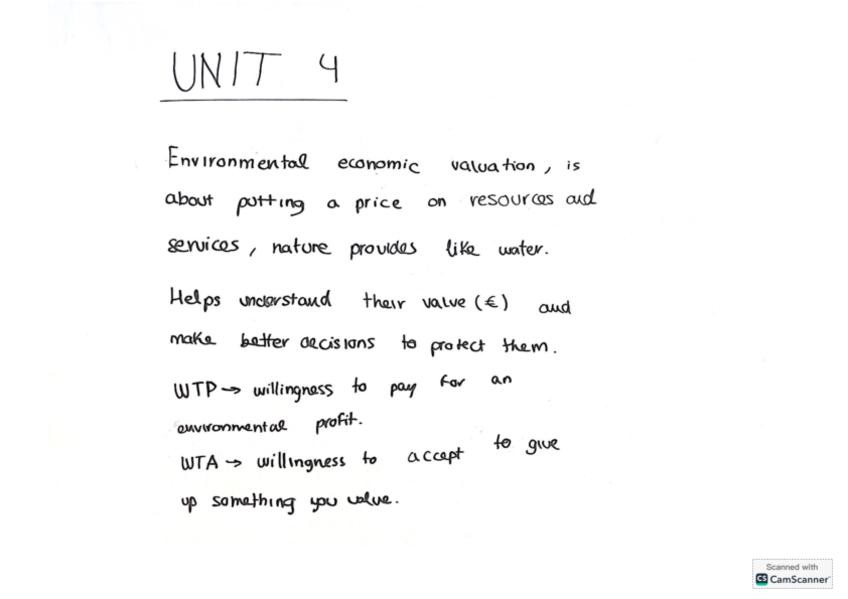 UNIT 4
Environmental economic valuation, is
about putting a price on resources and
services, nature provides like water.
Helps understand their value (€) and
make better decisions to protect them.
WTP → willingness to pay for an
environmental profit.
WTA → willingness to accept to give
up something you value.
Scanned with
CS CamScanner